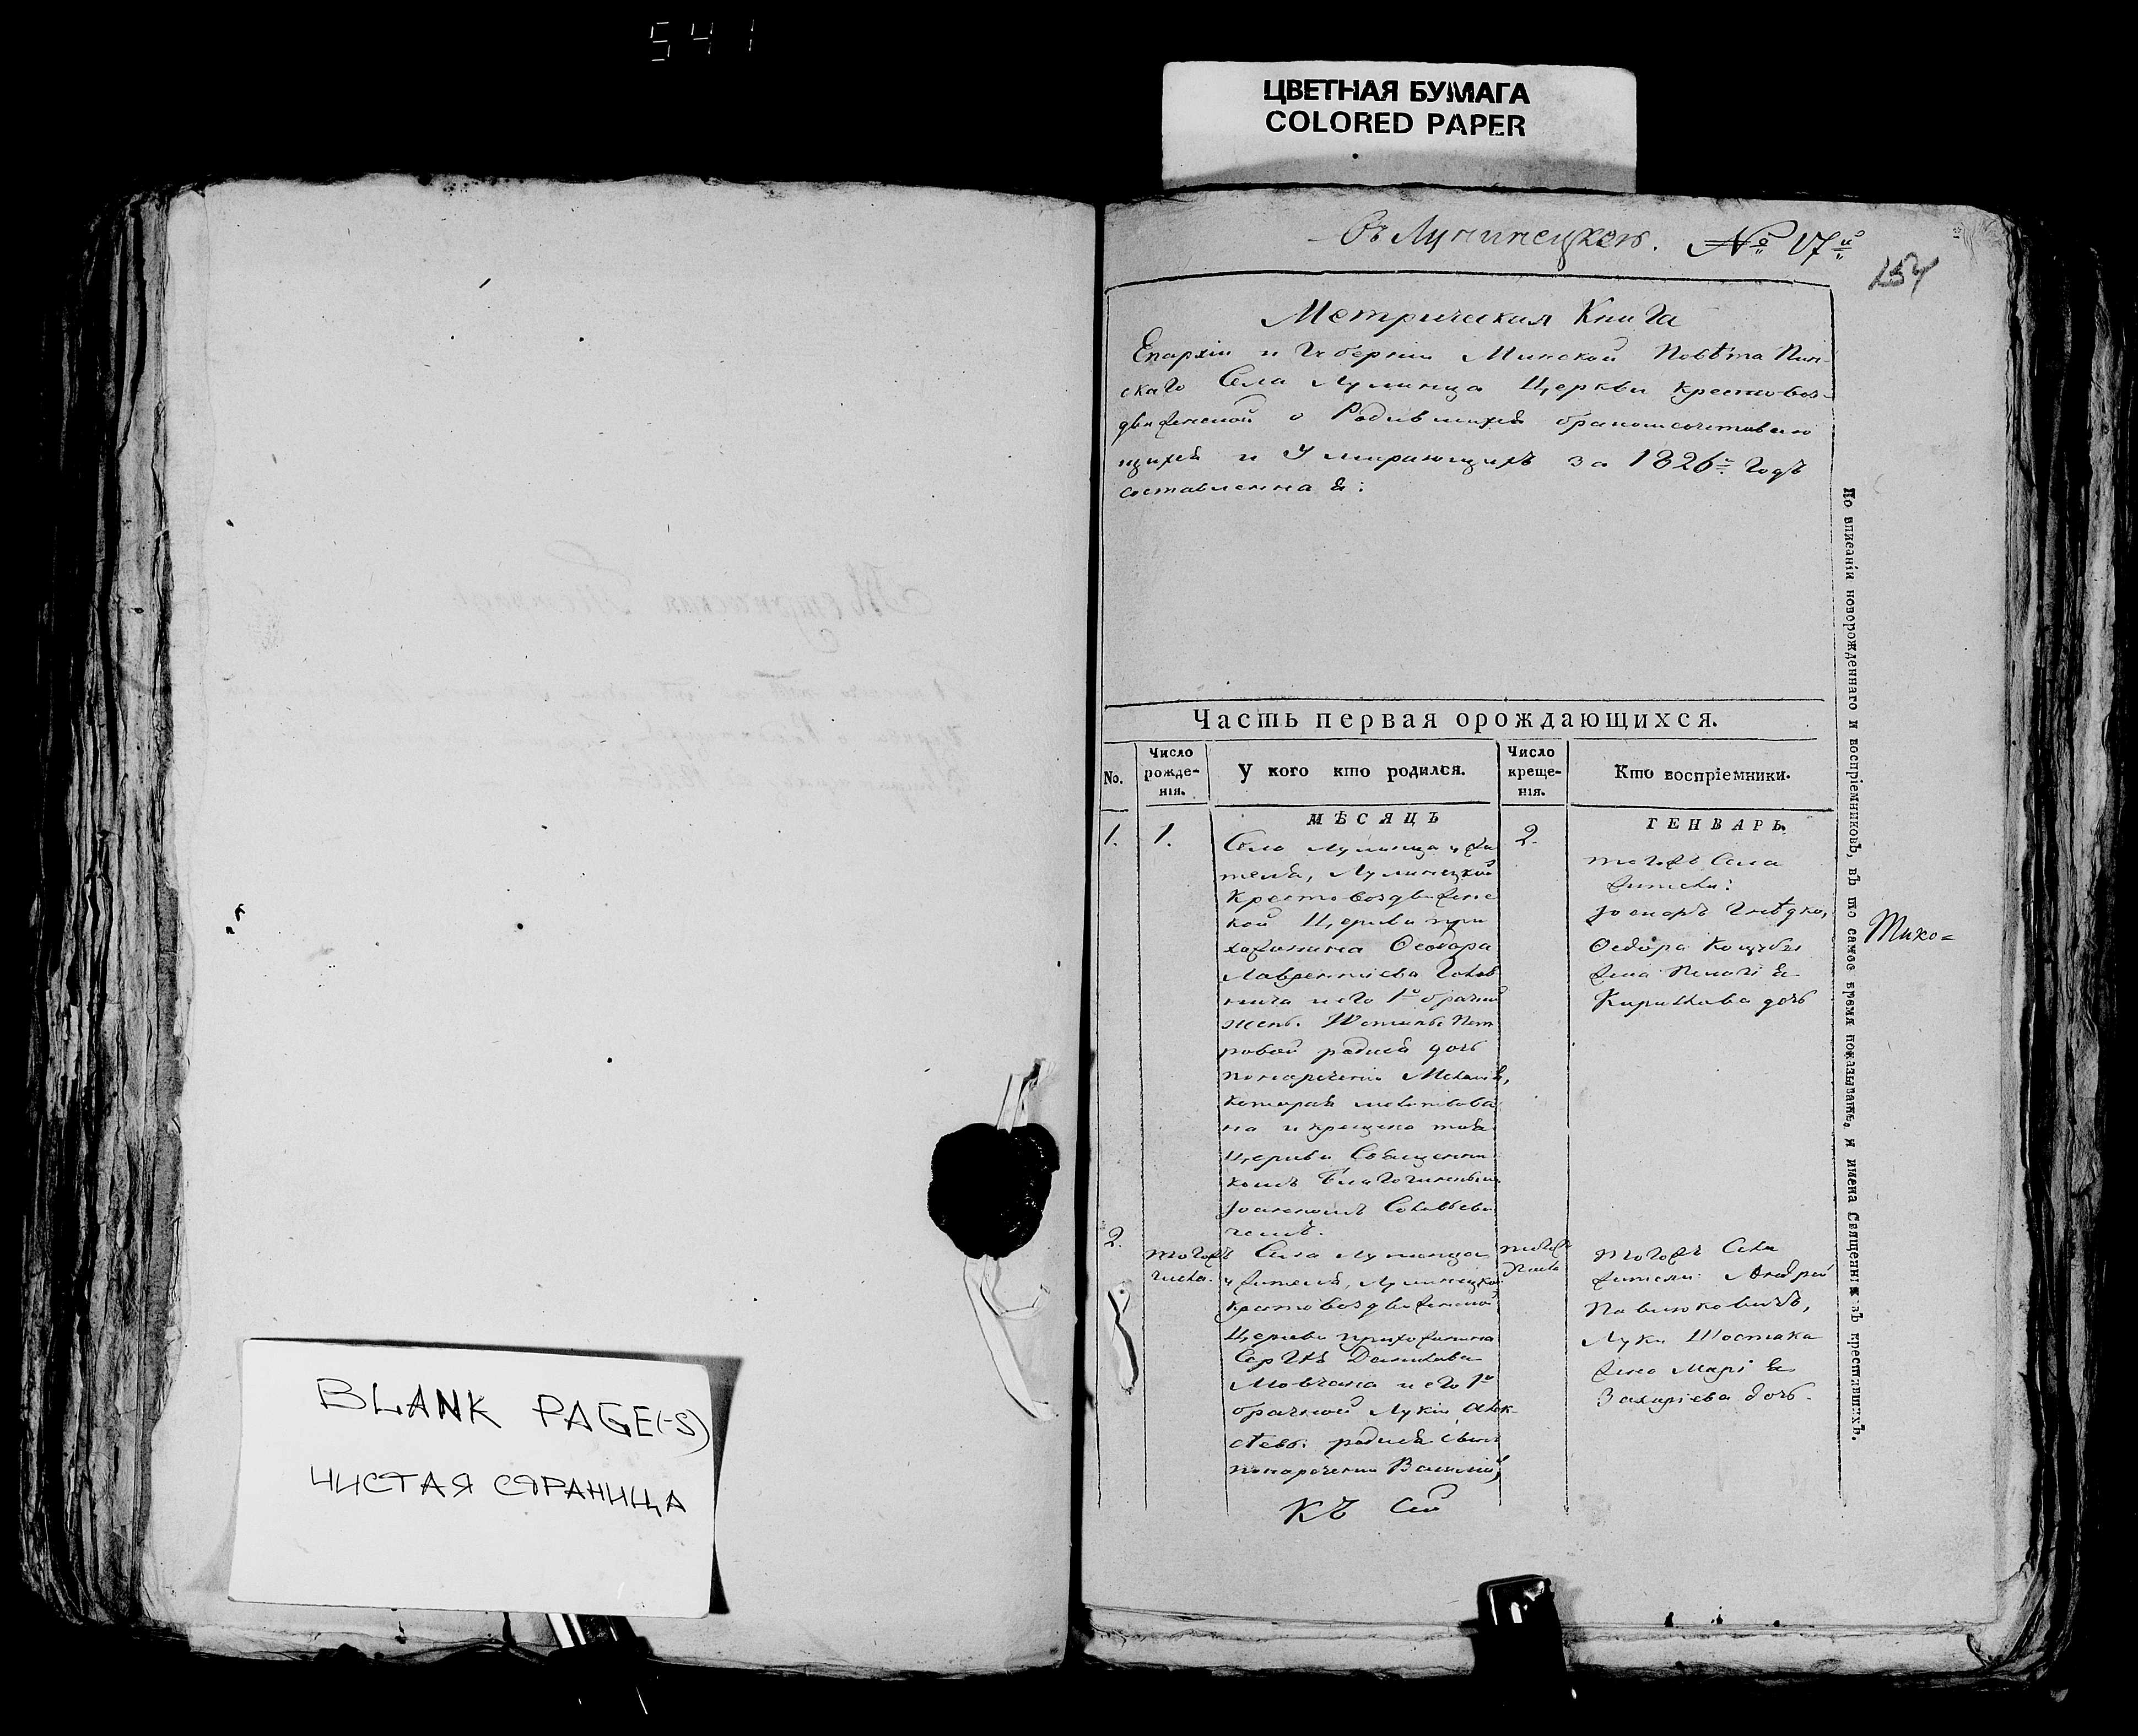 541
ЦВЕТНАЯ БУМАГА
COLORED PAPER
№ 17й
154
Метрическая Книга
Епархіи и Губерніи Минской Повѣта Пин-
скаго Села Лунинца Церкви Кресто воз-
движенской о Родившихся бракомсочетаваю
щихся и Умирающихъ за 1826й годъ
составленная:
Часть первая орождающихся.
No.
Число рожде-нія.
У кого кто родился.
Число креще-нія.
Кто воспріемники.
МѢСЯЦЪ
ГЕНВАРЬ.
1.
1.
Села Лунинца жи
теля, Лунинецкой
Крестовоздвиженс
кой Церкви при
хожанина Феодора
Лаврентіева
нича и его 1о брачной
жены Пет
ровой родися дочь
понареченіи
которая молитвова
на и крещена тоя
Церкви Священни
комъ Благочиннымъ
Іоанномъ
чемъ.
2.
тогожъ Села
жители:
Гнѣдко,
Федора
жена
Кирилова дочь
2.
тогожъ
числа.
Села Лунинца
жителя, Лунинецкой
Крестовоздвиженской
Церкви прихожанина
Сергѣя Данилова
Мовчана и его 1о
брачной Лукіи Алек
сѣевы родися сынъ
понареченіи Василій,
тогожъ
числа
тогожъ Села
жители: Андрей
Павлюковичъ,
Луки Шостака
жена Марія
Захаріева дочь.
Къ Сей
По вписаніи новорожденнаго и воспріемниковъ, въ то самое время показывать, и имена Священниковъ крестившихъ.
Тихо=
BLANK PAGE(-S)
ЧИСТАЯ СТРАНИЦА